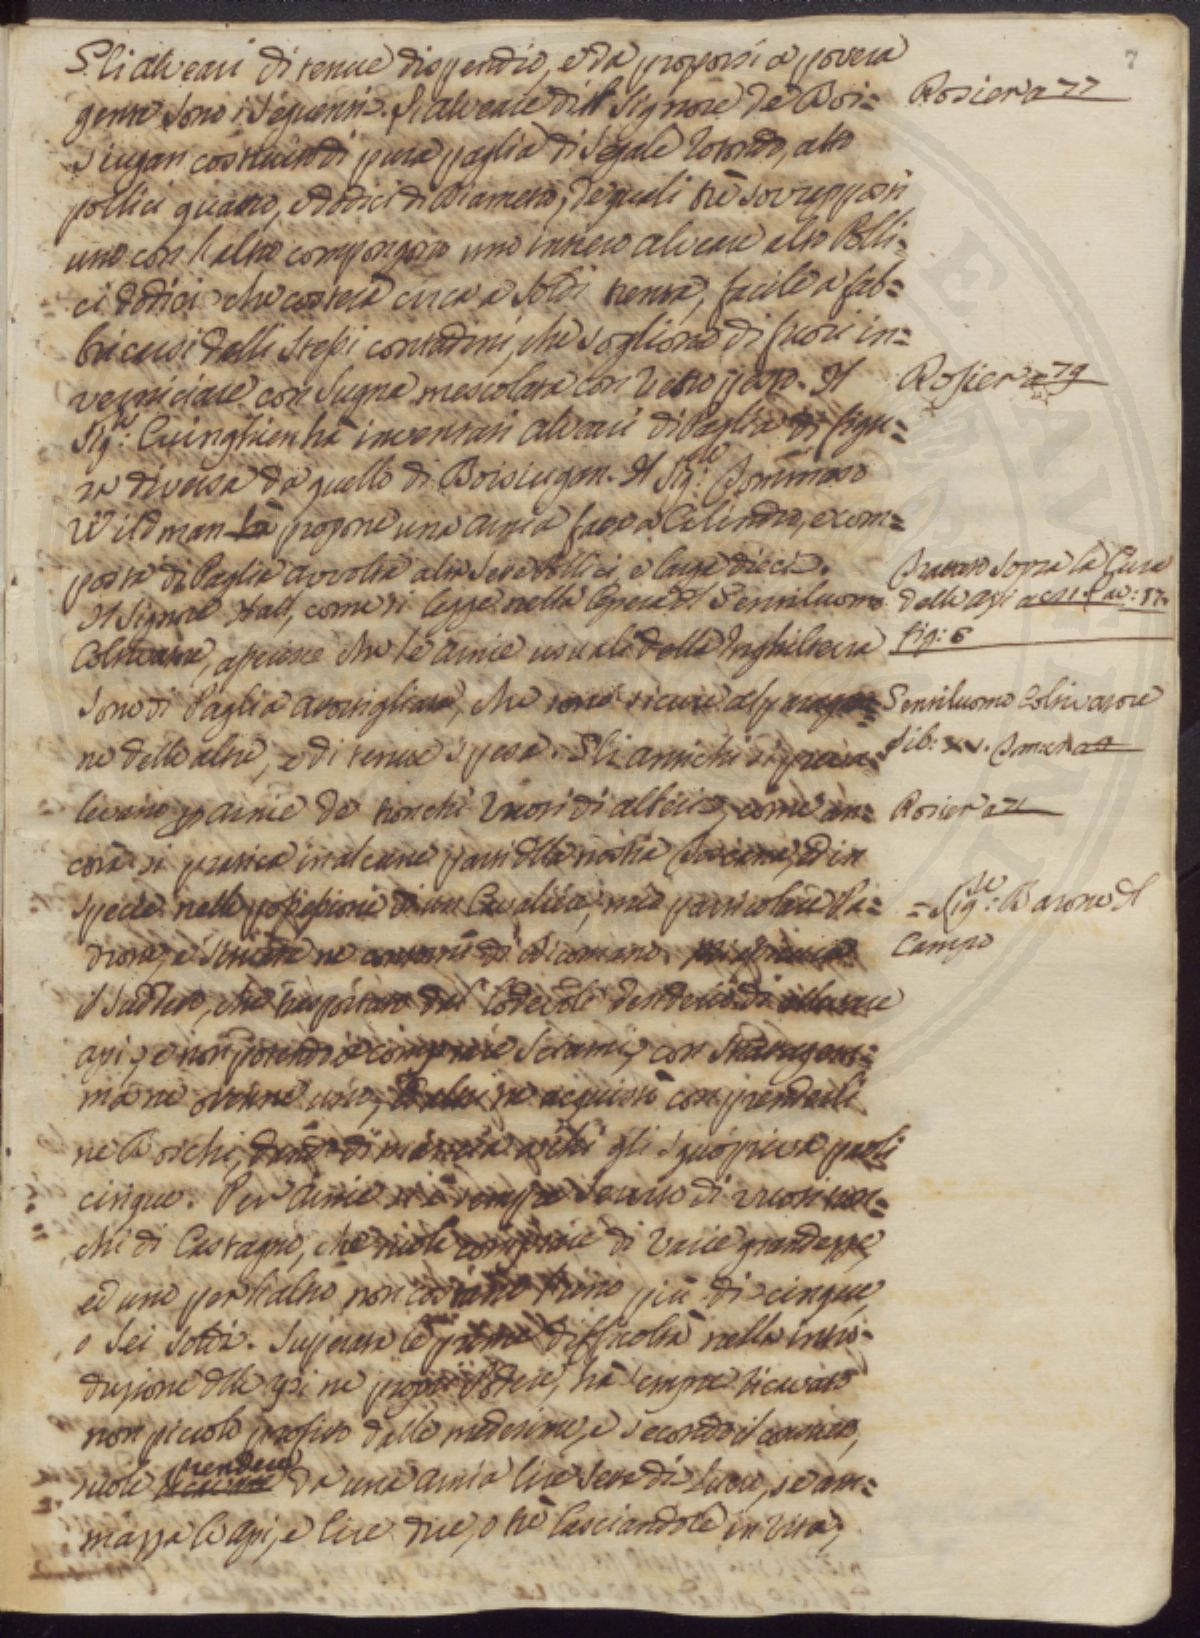 7
Gli alveari di tenue dispendio, e da proporsi a povera
gente sono i seguenti. L'alveare del Signore de Boi=
siugan costruito di pura paglia di segale rotondo, alto
pollici quattro, e dodici di Diametro, de quali tre sovrapposti
uno con l'altro compongono uno intiero alveare alto Polli=
ci dodici che costerà circa a soldi trenta, facile a fab=
bricarsi dalli stessi contadini, che sogliono di fuori in=
verniciare con sugna mescolata con vetro pesto. Il
Sig:re Cuinghien hà inventati alveari di Paglia di figu=
ra diversa da quello di Boisiugan. Il Sig:re Tommaso
Wildman propone una arnia fatta a Cilindro, e com=
posta di Paglia avvolta alta sette Pollici e larga dieci.
Il Signore Hall, come si legge nella Opera del Gentiluomo
Coltivatore, asserisce che le arnie usuali della Inghilterra
sono di Paglia attortigliata, che sono sicure al parago=
ne delle altre, e di tenue spesa. Gli antichi si preva=
levano per arnie de tronchi vuoti di alberi, come an=
cora si pratica in alcune parti della nostra Toscana, ed in
specie nelle possessioni di un Cavaliere, mio particolare Pa=
drone, e situate ne contorni di Dicomano.
il suddetto, che trasportato dal lodevole desiderio di
api, e non potendo comprare sciami, con
ma ne ottenne uno, ne acquistò con prenderli
ne Boschi, di mancia a chi gli scuopriva paoli
cinque. Per arnie si è sempre servito di vuoti tron=
chi di Castagno, che suole comprare di varie grandezze,
ed uno per l'altro non costano più di cinque,
o sei soldi. Superata le prime difficoltà nella intro=
duzione delle api ne propri Poderi, hà sempre ricavato
non piccolo profitto dalle medesime, e secondo il consueto,
suole prendere da una arnia lire sette di lucro, se am=
mazza le api, e lire due, o tre lasciandole in vita;
Rosier a 77
Rosier a 79
Trattato sopra la Cura
delle api
fig: 6
Gentiluomo Coltivatore
Lib: XV.
Rosier a 71
= Sig:re Barone del
Campo